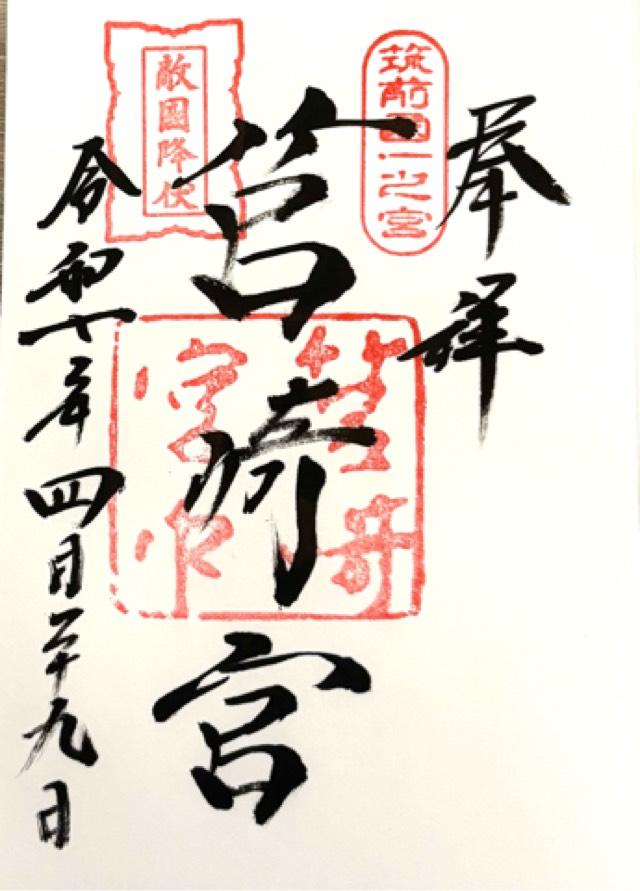 奉拝
筑前國一之宮
筥崎宮
筥崎宮印
敵國降伏
令和七年四月二十九日